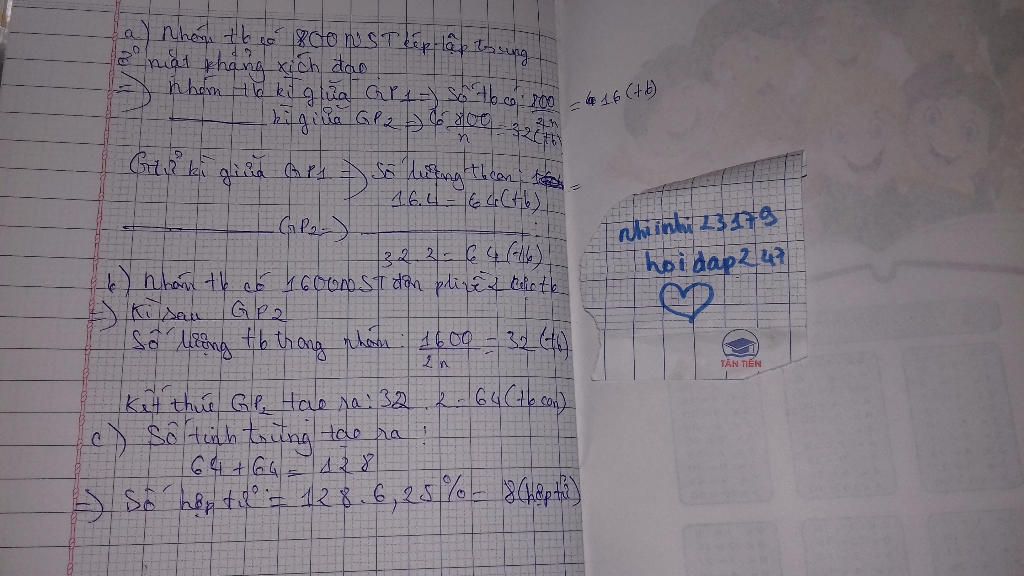 a) Nhóm tb có 800 NST kép tập trung
ở mặt phẳng xích đạo
=) nhóm tb kì giữa GP1 =) Số tb có: 800/2n = 16 (tb)
kì giữa GP2 =) Có 800/n = 32 (tb)
Gtử kì giữa GP1 =) Số lượng tb con: =
16.4 = 64 (tb)
GP2 =) :
32 2 = 64 (tb)
b) Nhóm tb có 1600 NST đơn phía 2 cực tb
=) Kì sau GP2
Số lượng tb trong nhóm: 1600/2n = 32 (tb)
Kết thúc GP2 tạo ra: 32 . 2 = 64 (tb con)
c) Số tinh trùng tạo ra :
64 + 64 = 128
=) Số hợp tử = 128 . 6,25% = 8 (hợp tử)
nhiinhi23179
hoidap247
TÂN TIẾN